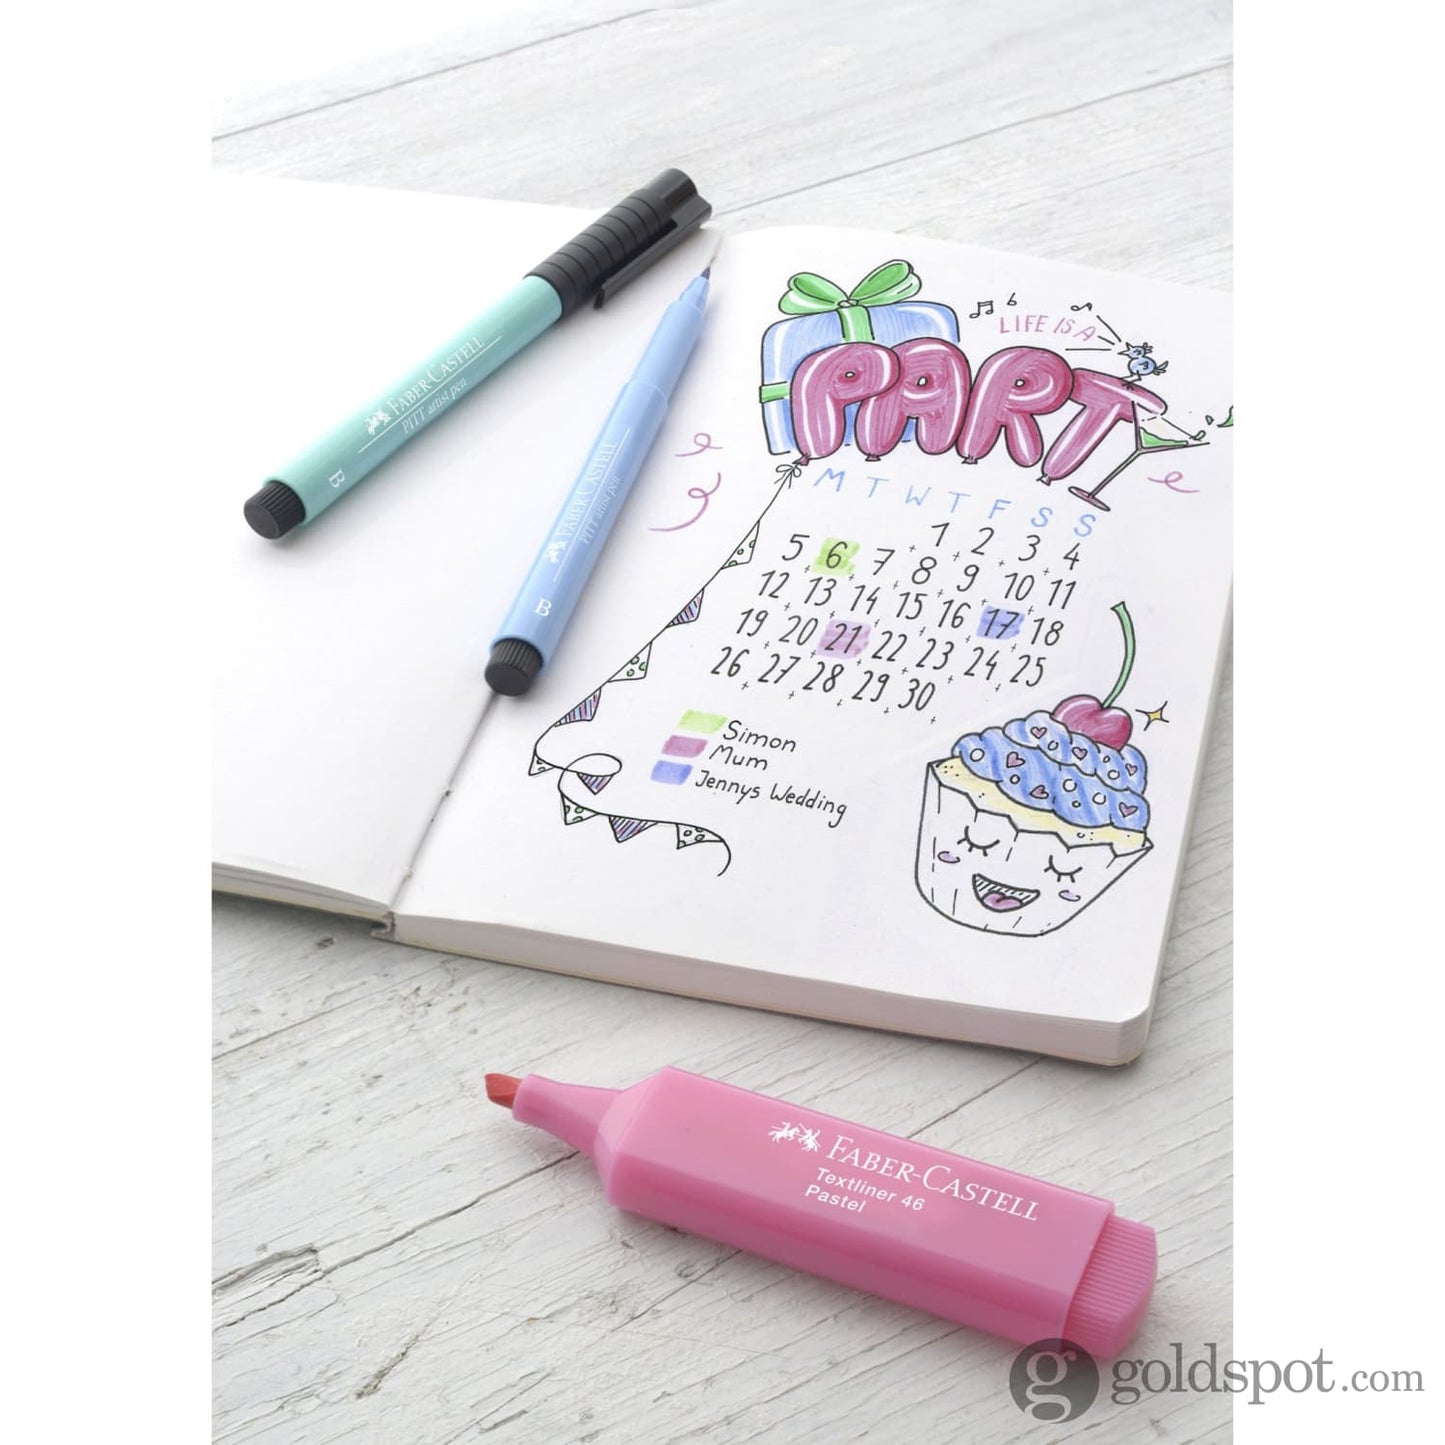 FABER-CASTELL
PITT artist pen
B
FABER-CASTELL
PITT artist pen
B
LIFE IS A
PARTY
M T W T F S S
1 2 3 4
5 6 7 8 9 10 11
12 13 14 15 16 17 18
19 20 21 22 23 24 25
26 27 28 29 30
Simon
Mum
Jennys Wedding
FABER-CASTELL
Textliner 46
Pastel
g goldspot.com